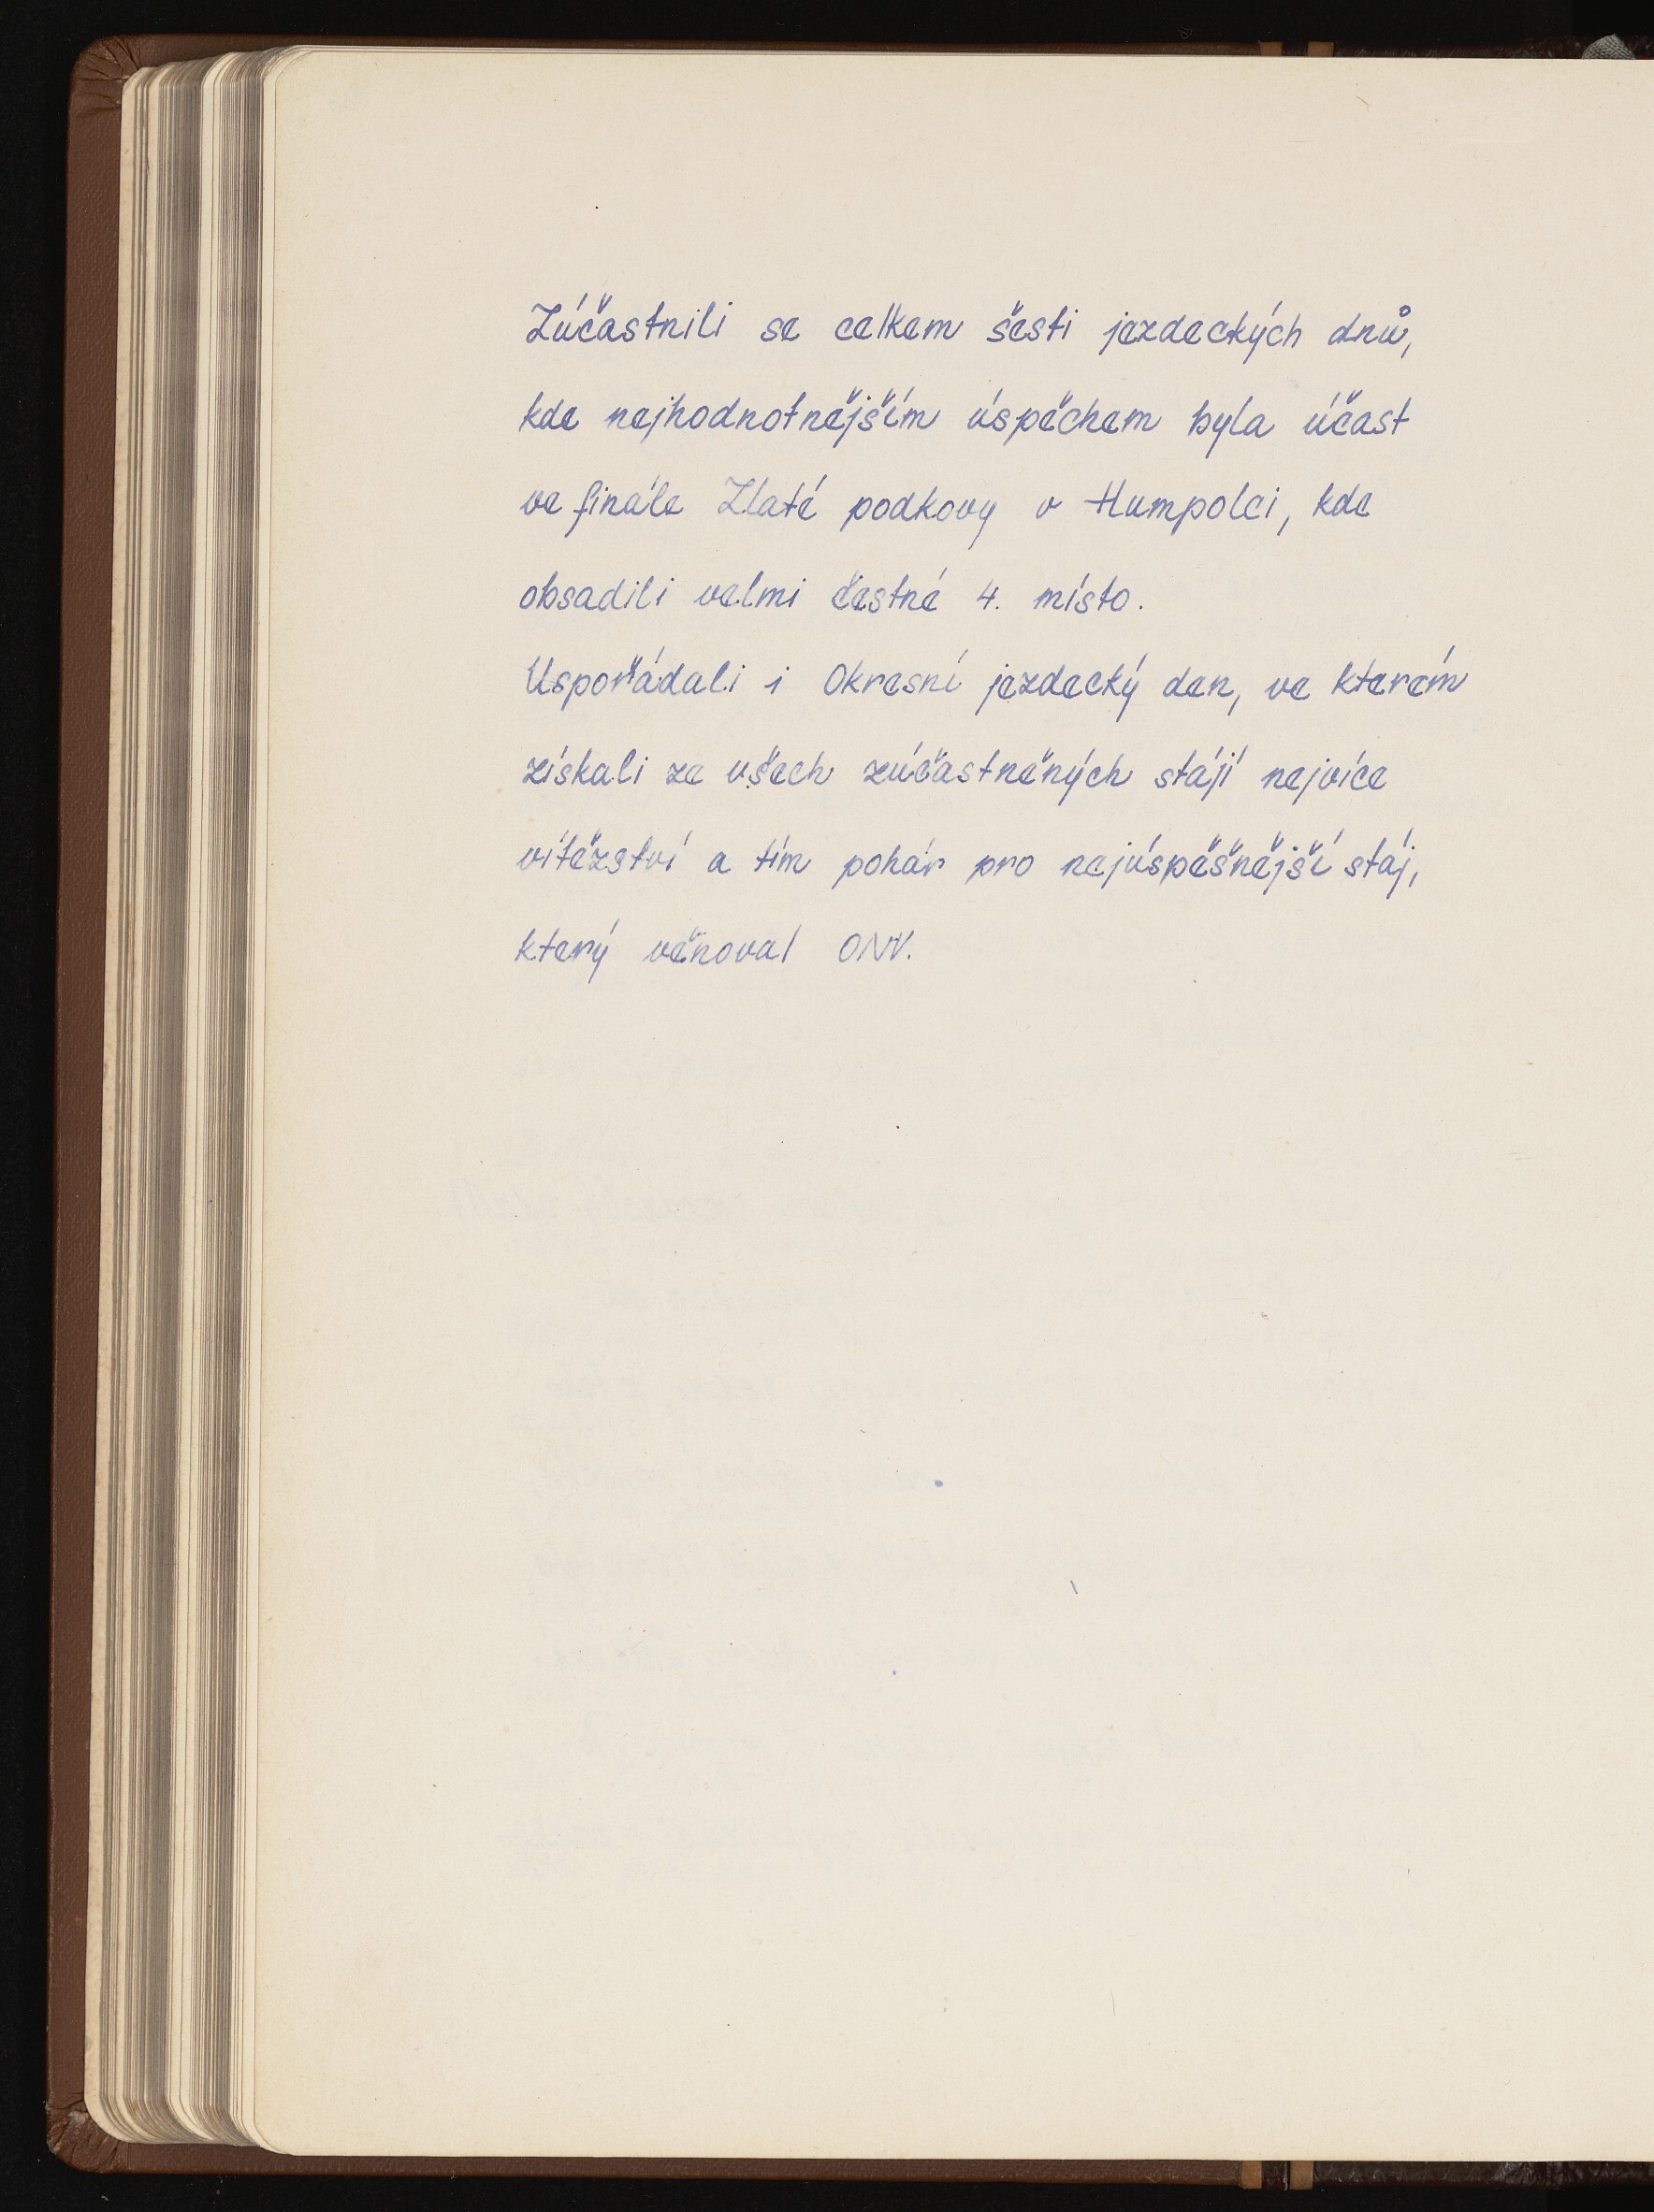 Zúčastnili se celkem šesti jezdeckých dnů,
kde nejhodnotnějším úspěchem byla účast
ve finále Zlaté podkovy v Humpolci, kde
obsadili velmi čestné 4. místo.
Uspořádali i Okresní jezdecký den, ve kterém
získali ze všech zúčastněných stájí nejvíce
vítězství a tím pohár pro nejúspěšnější stáj,
který věnoval ONV.